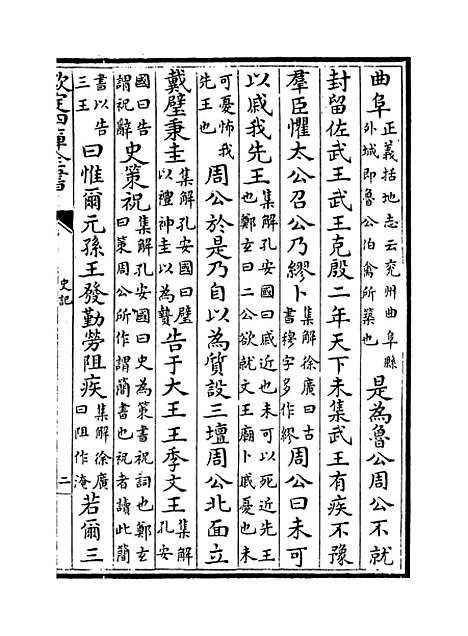 曲阜正義括地志云兖州曲阜縣外城即魯公伯禽所築也是為魯公周公不就
封留佐武王武王克殷二年天下未集武王有疾不豫
羣臣懼太公召公乃繆卜集解徐廣曰古書穆字多作繆周公曰未可
以戚我先王集解孔安國曰戚近也未可以死近先王也鄭玄曰二公欲就文王廟卜戚憂也未
可憂怖我先王也周公於是乃自以為質設三壇周公北面立
戴璧秉圭集解孔安國曰璧以禮神圭以為贄告于太王王季文王集解孔安
國曰告謂祝辭史策祝集解孔安國曰史為策書祝詞也鄭玄曰策周公所作謂簡書也祝者讀此簡
書以告三王曰惟爾元孫王發勤勞阻疾集解徐廣曰阻作淹若爾三
欽定四庫全書
史記
二